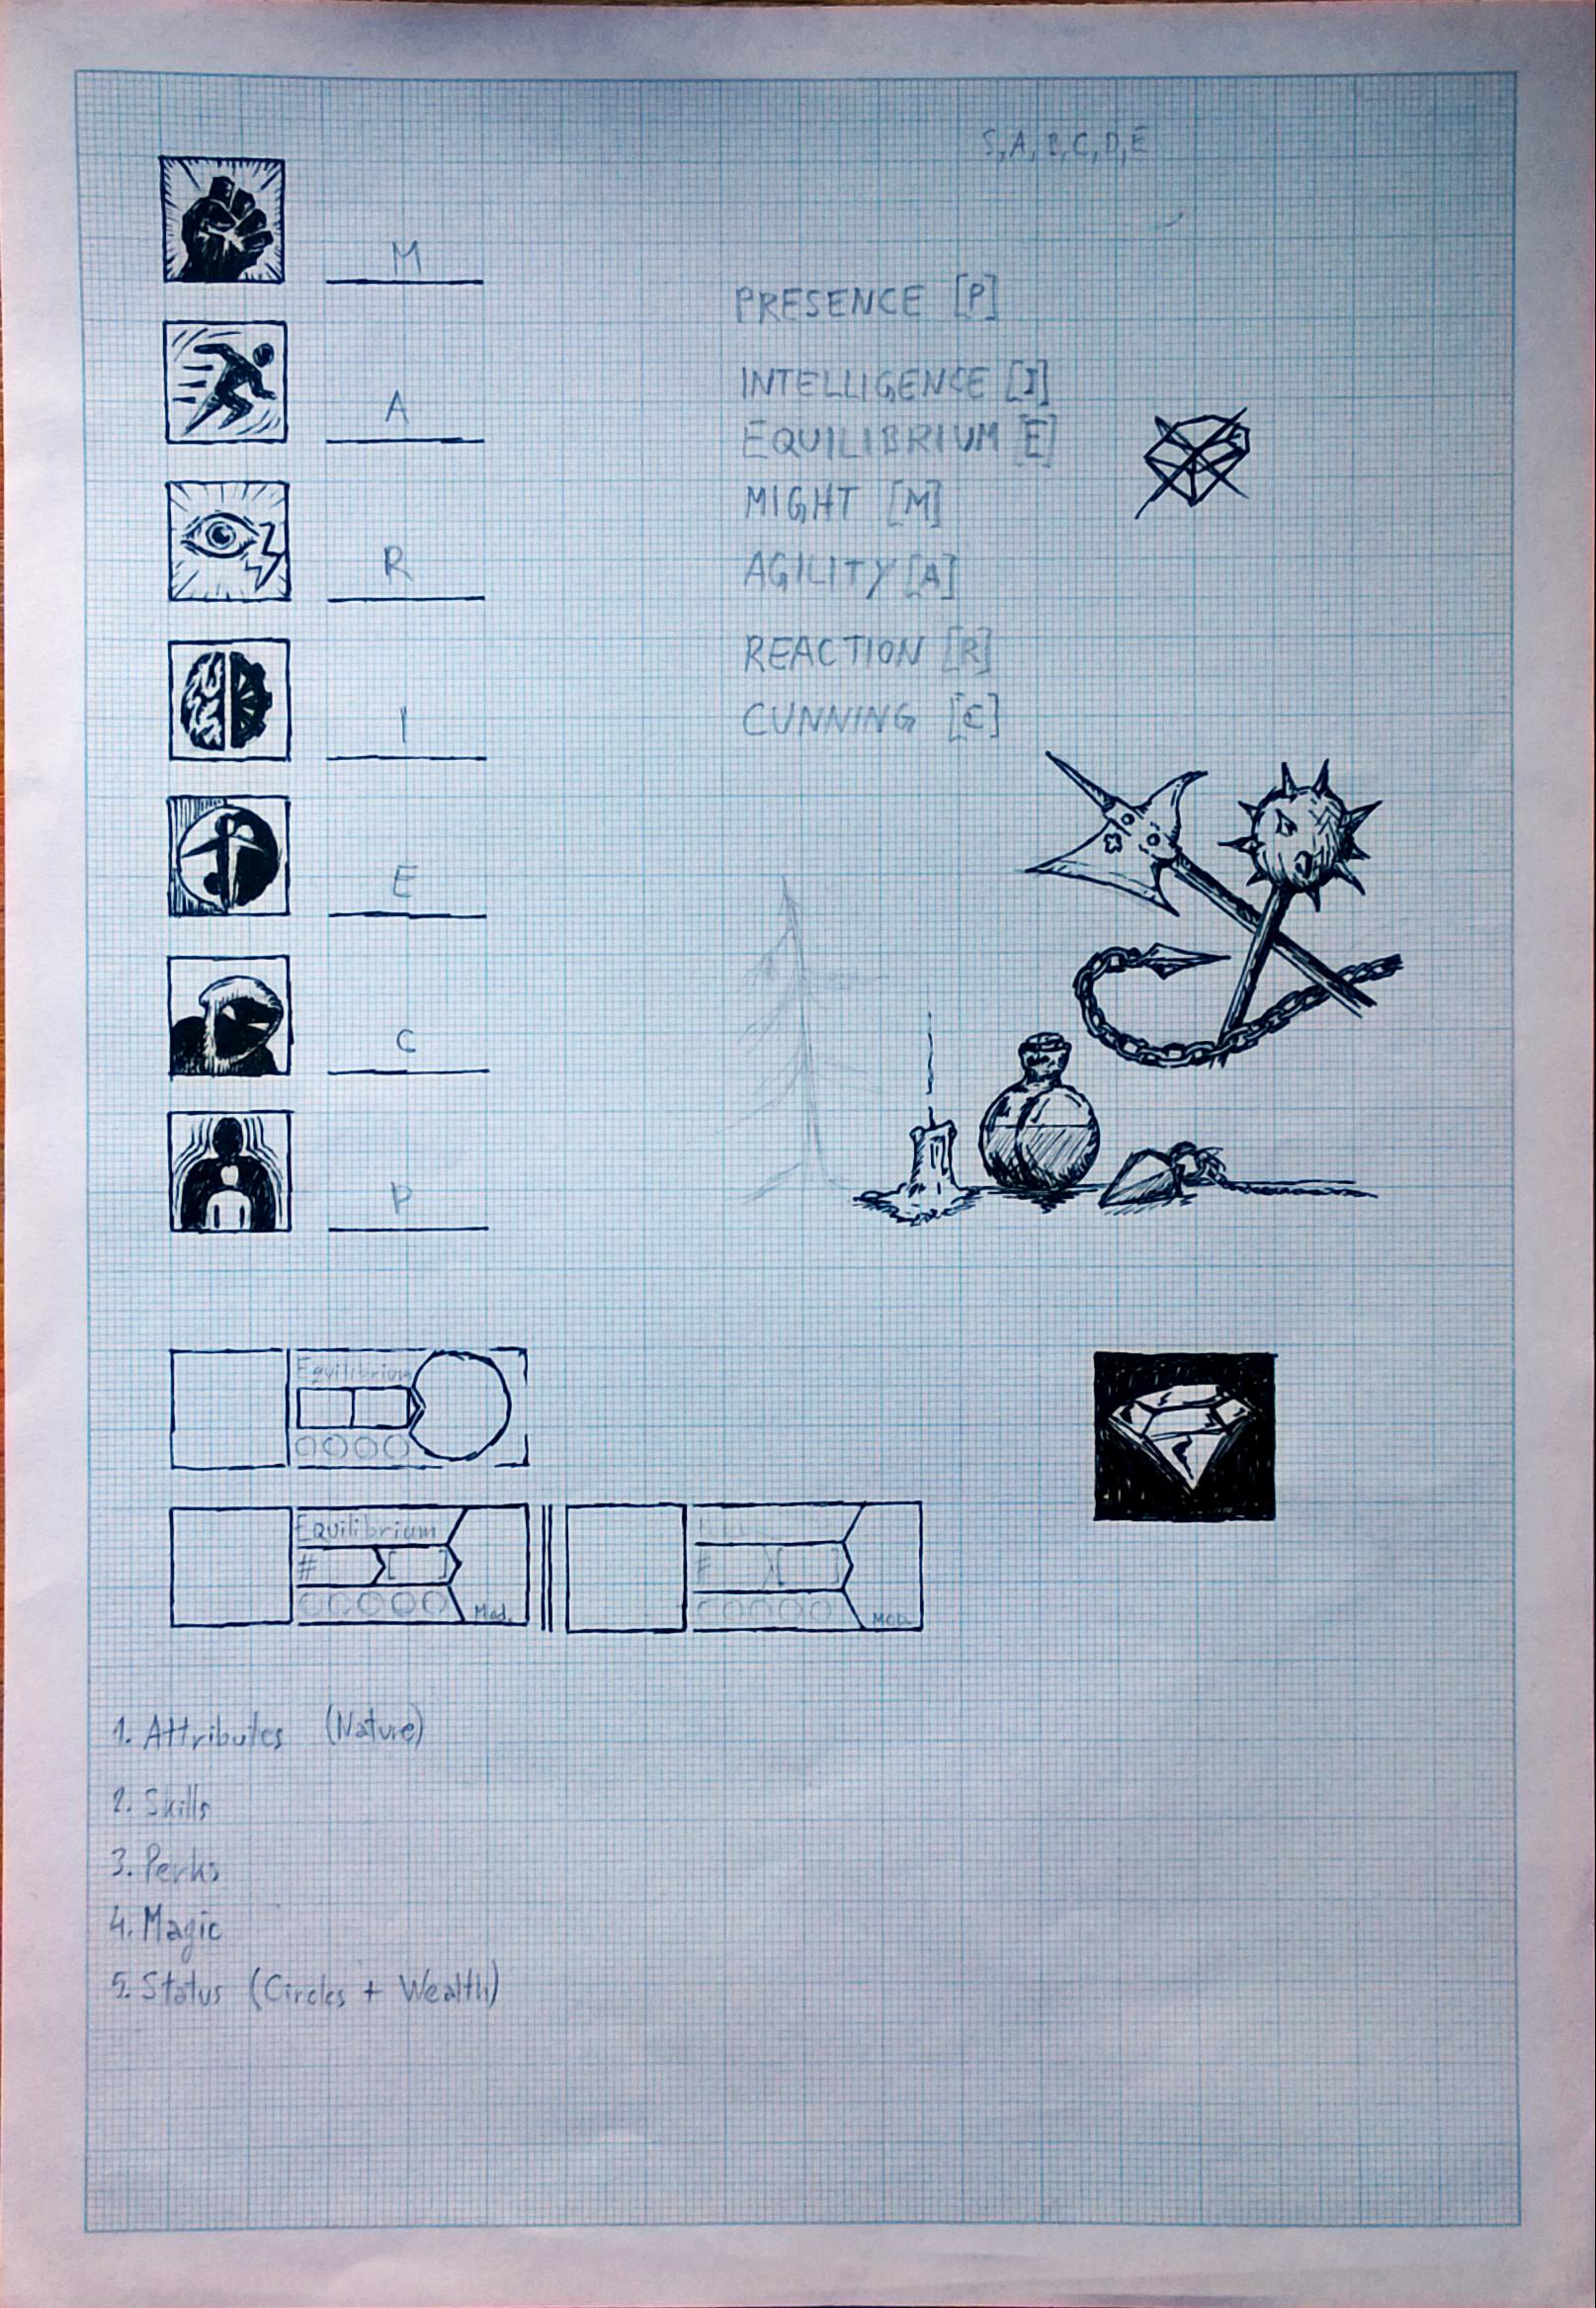 S, A, B, C, D, E
M
A
R
I
E
C
P
PRESENCE [P]
INTELLIGENCE [I]
EQUILIBRIUM [E]
MIGHT [M]
AGILITY [A]
REACTION [R]
CUNNING [C]
Equilibrium
Equilibrium
# [ ]
Mod.
# [ ]
MOD.
1. Attributes (Nature)
2. Skills
3. Perks
4. Magic
5. Status (Circles + Wealth)